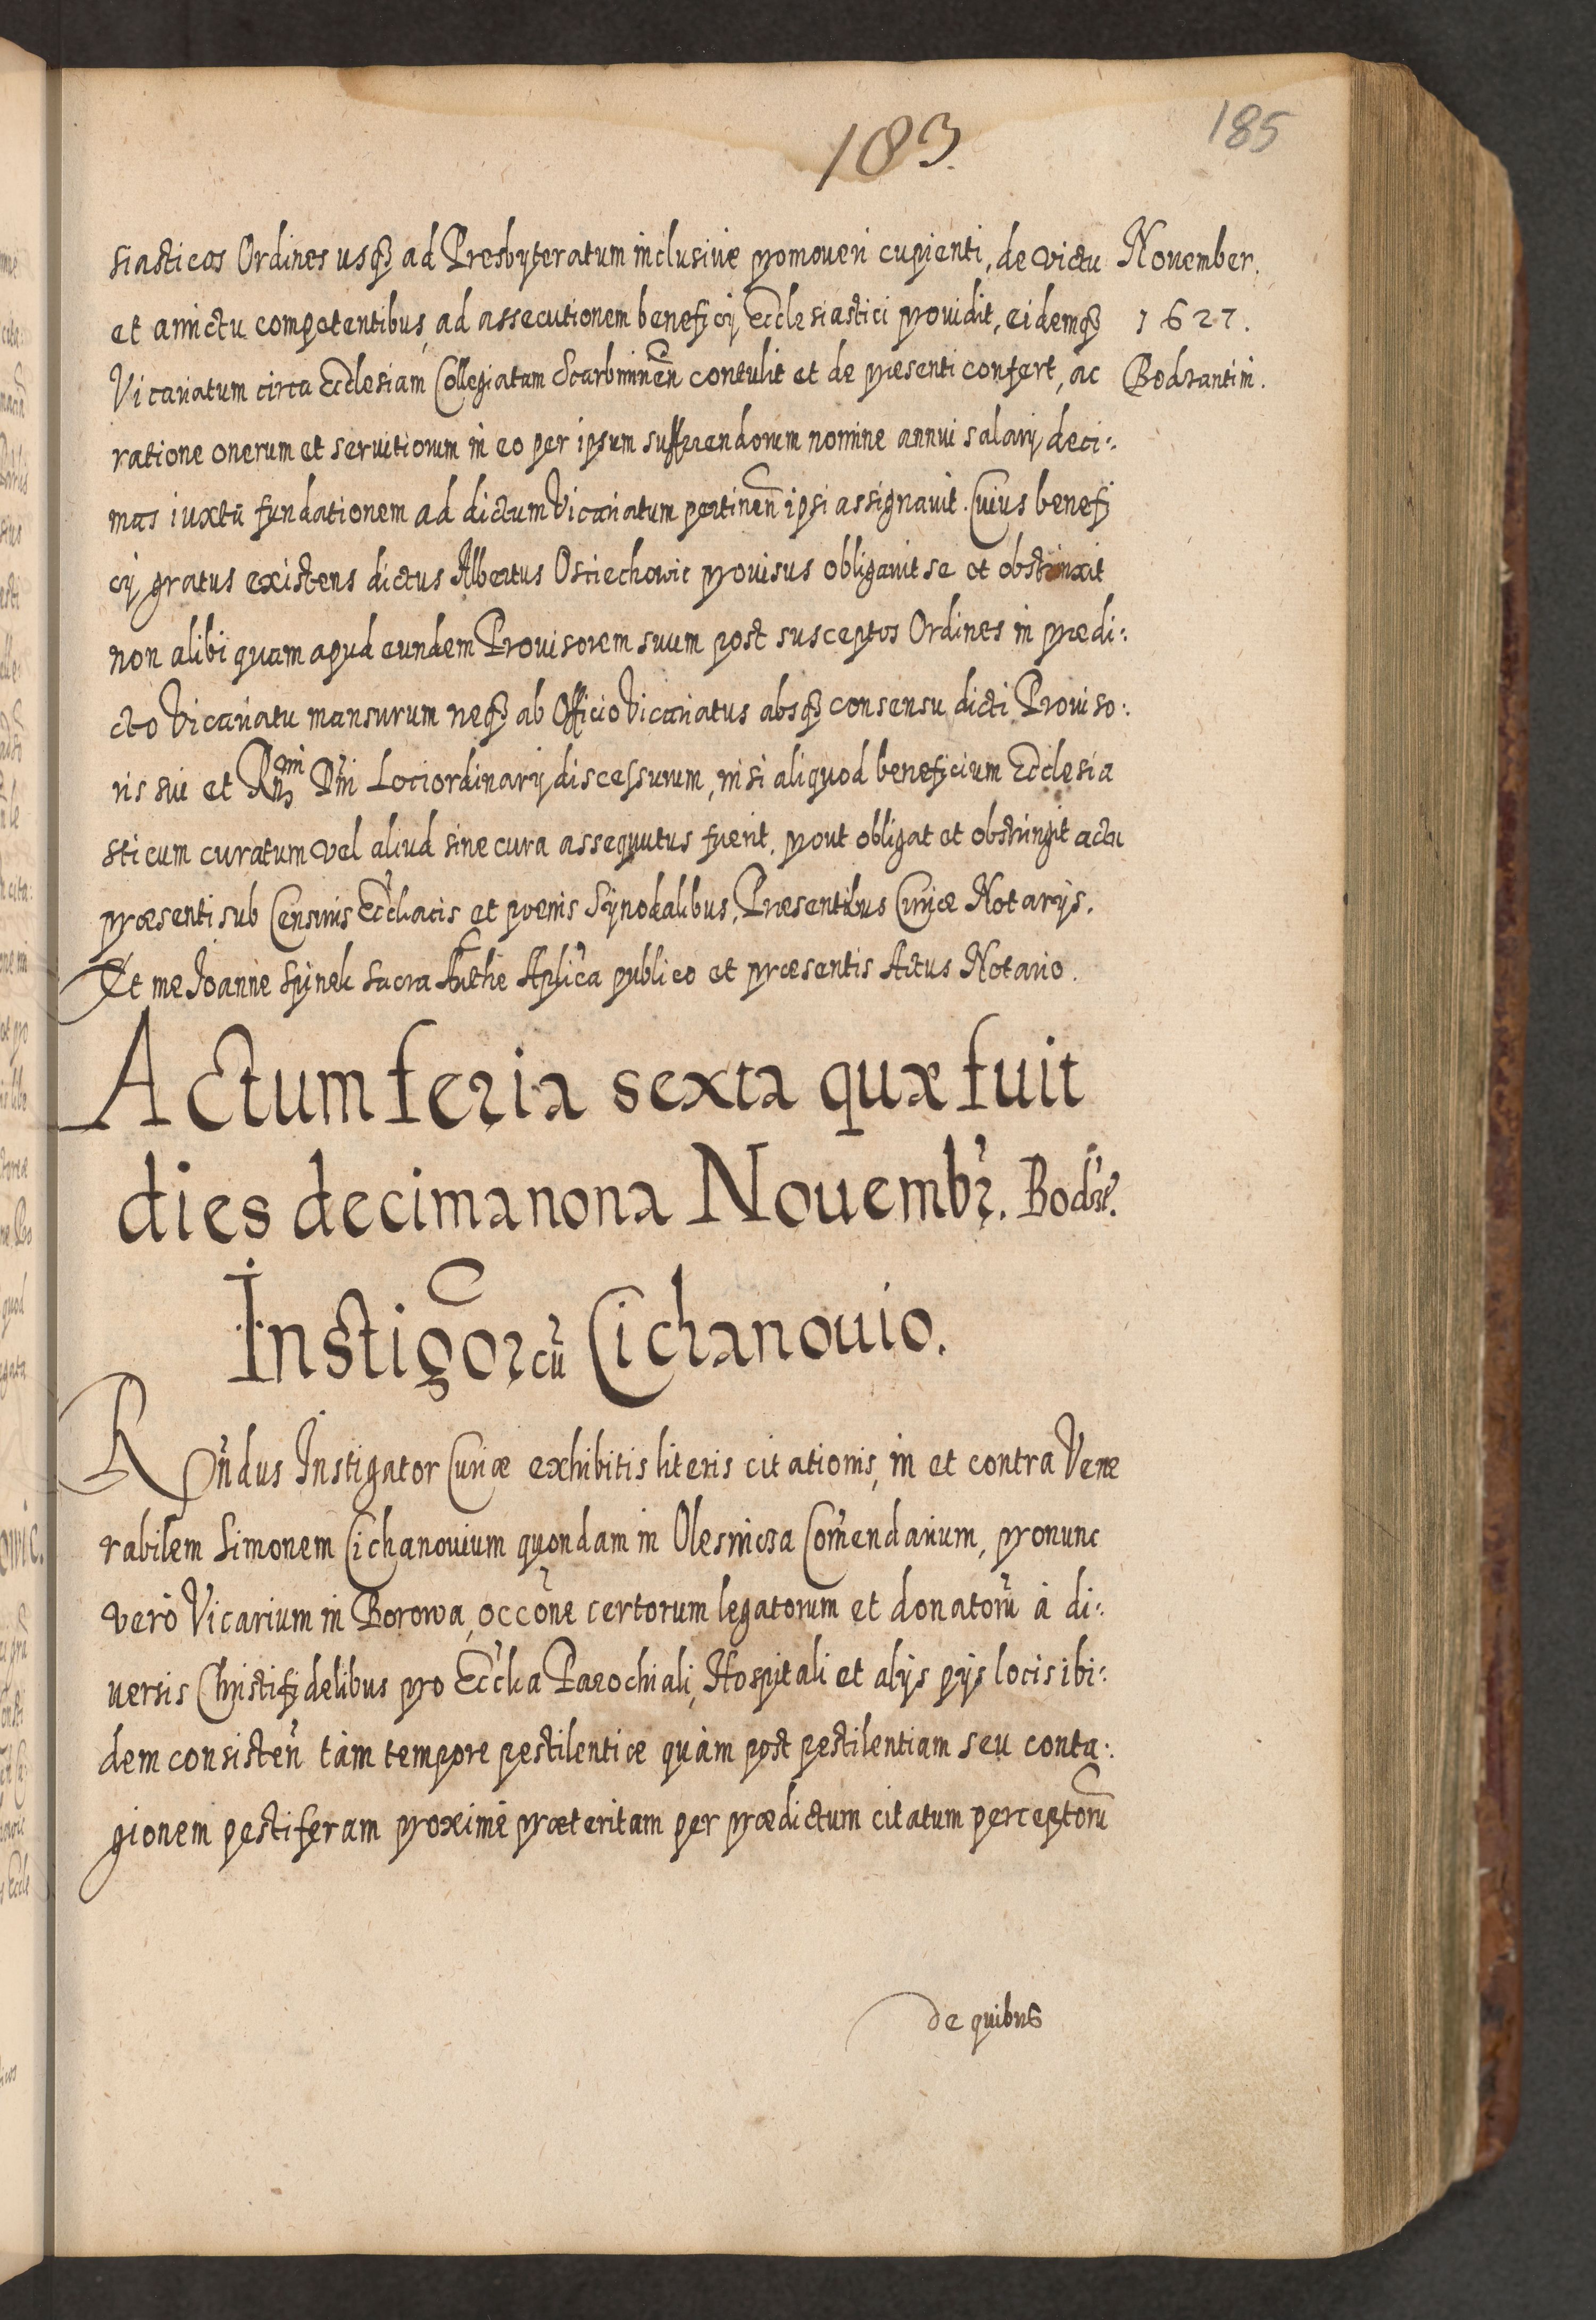 183.
185
siasticos Ordines usq3 ad Presbyteratum inclusiuè promoueri cupienti, de victu
November.
et amictu competentibus, ad assecutionem beneficij Ecclesiastici prouidit, eidemq3
1627.
Vicariatum circa Ecclesiam Collegiatam Scarbimiren̄ contulit et de præsenti confert, ac
Bodzantini.
ratione onerum et seruitiorum in eo per ipsum sufferendorum nomine annui salarij deci:
mas iuxta fundationem ad dictum Vicariatum pertinen̄ ipsi assignauit. Cuius benefi
cij gratus existens dictus Albertus Osciechowic prouisus obligauit se et obstrinxit
non alibi quam apud eundem Prouisorem suum post susceptos Ordines in prædi:
cto Vicariatu mansurum neq3 ab Officio Vicariatus absq3 consensu dicti Prouiso:
ris sui et Rn̄mi Dn̄i Lociordinarij discessurum, nisi aliquod beneficium Ecclesia
sticum curatum vel aliud sine cura assequutus fuerit, prout obligat et obstringit actu
præsenti sub Censuris Ecc'licis et pœnis Synodalibus, Præsentibus Curiæ Notarijs.
Et me Joanne Spinek Sacra Authe Aplica publico et præsentis Actus Notario.
Actum feria sexta quæ fuit
dies decimanona Nouembr. Bodze.
Instigor cū Cichanouio.
Rn̄dus Instigator Curiæ exhibitis literis citationis, in et contra Vene
rabilem Simonem Cichanouium quondam in Olesnicza Com̄endarium, pronunc
verò Vicarium in Borowa, occōne certorum legatorum et donatorū à di:
uersis Christifidelibus pro Ecc'lia Parochiali, Hospitali et alijs pijs locis ibi:
dem consisten̄ tàm tempore pestilentiæ quàm post pestilentiam seu conta:
gionem pestiferam proximè præteritam per prædictum citatum perceptorū
de quibus